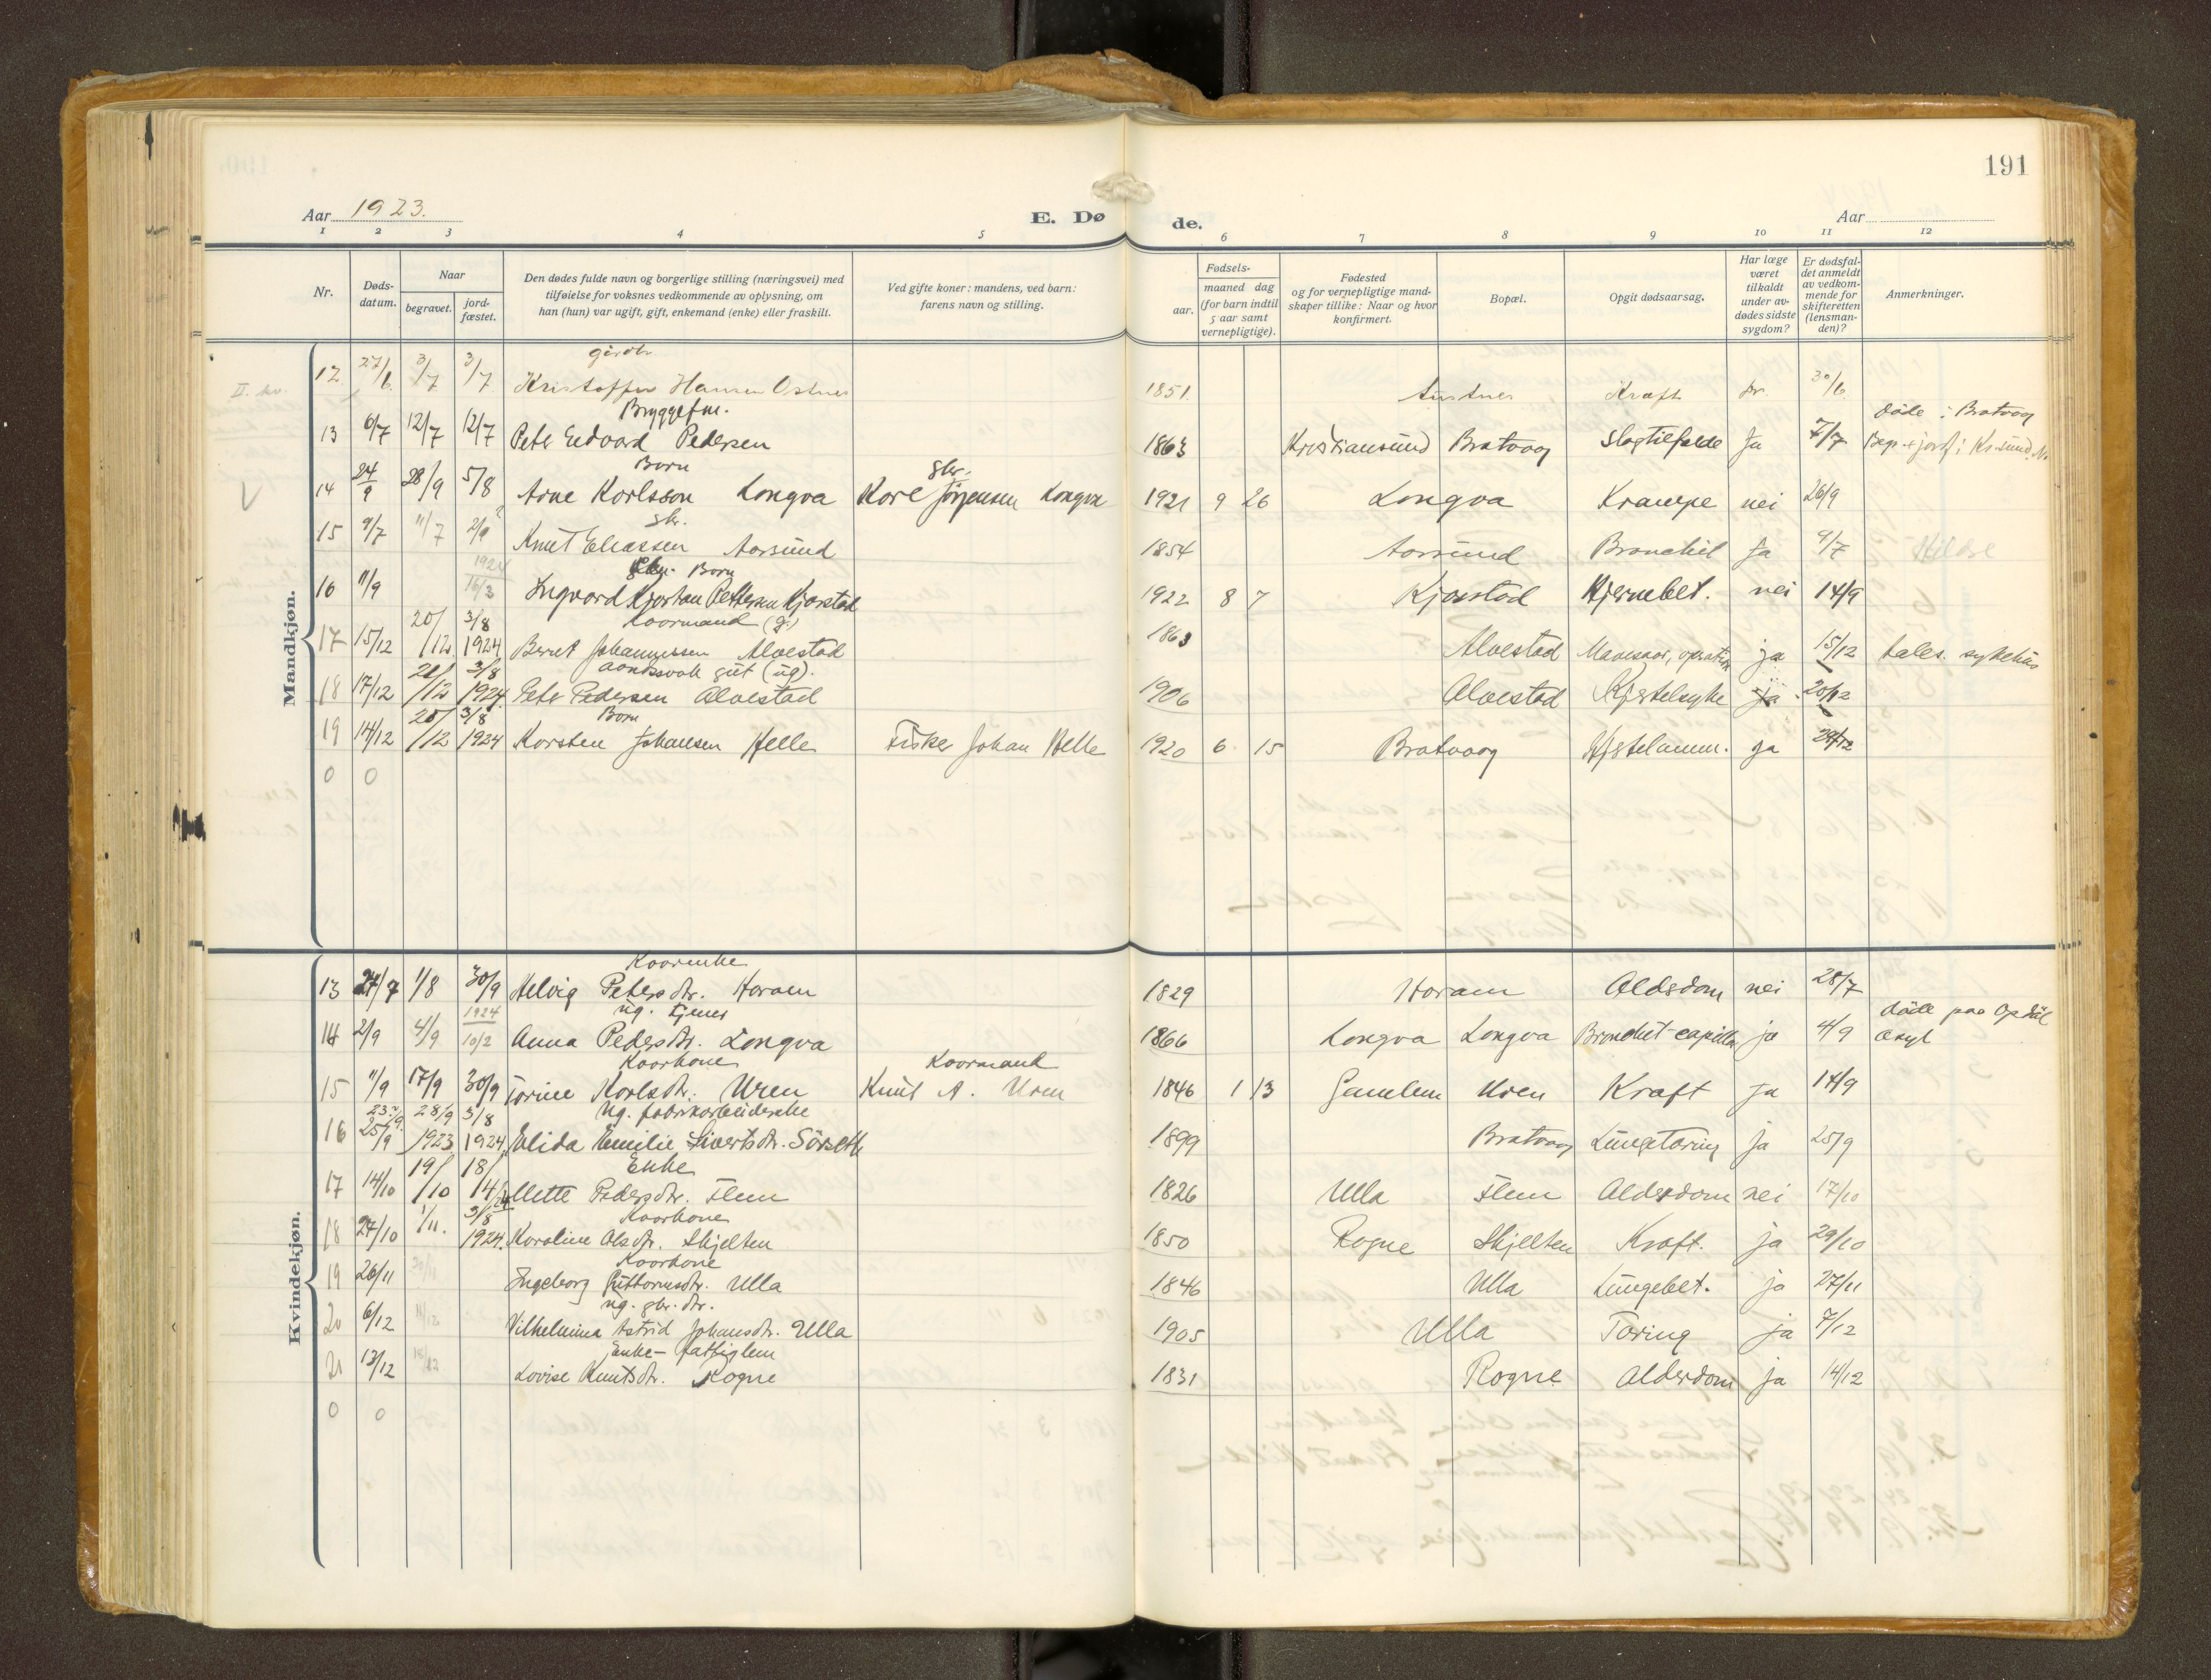 191
Aar 1923.
E. Dø de.
Aar
1 2 3 4 5 6 7 8 9 10 11 12
Nr.
Døds-datum.
Naar
begravet.
jord-fæstet.
Den dødes fulde navn og borgerlige stilling (næringsvei) med
tilføielse for voksnes vedkommende av oplysning, om
han (hun) var ugift, gift, enkemand (enke) eller fraskilt.
Ved gifte koner: mandens, ved barn:
farens navn og stilling.
Fødsels-
aar.
maaned dag
(for barn indtil
5 aar samt
vernepligtige).
Fødested
og for vernepligtige mand-
skaper tillike: Naar og hvor
konfirmert.
Bopæl.
Opgit dødsaarsag.
Har læge
været
tilkaldt
under av-
dødes sidste
sygdom?
Er dødsfal-
det anmeldt
av vedkom-
mende for
skifteretten
(lensman-
den)?
Anmerkninger.
Mandkjøn.
12 27/6 3/7 3/7 Kristoffer Hansen Ostnes 1851 Austnes Kræft 30/6
Bryggefm. døde i Bratvaag
13 6/7 12/7 12/7 Peter Edvard Pedersen 1863 Kristiansund Bratvaag Slagtilfælde Ja 7/7
Barn gbr.
V 14 24/9 28/9 5/8 Arne Karlsson Longva Karl Jørgensen Longva 1921 9 26 Longva Krampe nei 26/9
gbr.
15 9/7 11/7 2/9 Knut Eliassen Aarsund 1854 Aarsund Bronchit Ja 9/7 Hildre
1924
Barn
16 11/9 16/3 Ingvard Kjartan Pettersen Kjærstad 1922 8 7 Kjærstad Hjernebet. nei 14/9
Kaarmand (g.)
17 15/12 20/12 3/8 1924 Bernt Johannessen Alvestad 1863 Alvestad Mavesaar, operation ja 15/12 Aales. sykehus
aandssvak gut (ug).
18 17/12 21/12 3/8 1924 Peter Pedersen Alvestad 1906 Alvestad Kjertelsyke ja 20/12
Barn
19 14/12 20/12 3/8 1924 Karsten Johansen Helle Fisker Johan Helle 1920 6 15 Bratvaag ja
0 0
Kvindekjøn.
Kaarenke
13 27/7 1/8 30/9 Helvig Petersdtr. Haram 1829 Haram Aldsdom nei 28/7
1924 ug. tjener døde paa Opdøl
14 2/9 4/9 10/2 Anna Pedersdtr. Longva 1866 Longva Longva Bronchit-capillar ja 4/9 asyl
Kaarkone Kaarmand
15 11/9 17/9 30/9 Torine Karlsdtr. Uren Knut A. Uren 1846 1 13 Gamlem Uren Kræft ja 14/9
ug. fabrikarbeiderske
16 25/9 28/9 1923 3/8 1924 Elida Emilie Sivertsdtr. Sörseth 1899 Bratvaag Lungetæring ja 25/9
Enke
17 14/10 19/10 18/4 24 Mette Pedersdtr. Flem 1826 Ulla Flem Alderdom nei 17/10
Kaarkone
18 27/10 1/11. 3/8 1924. Karoline Olsdtr. Skjelten 1850 Rogne Skjelten Kræft. ja 29/10
Kaarkone
19 26/11 Ingeborg Guttormsdtr. Ulla 1846 Ulla Lungebet. ja 27/11
ug. gbr. dtr.
20 6/12 11/12 Vilhelmina Astrid Johansdtr. Ulla 1905 Ulla Tæring ja 7/12
Enke – fattiglem
21 13/12 18/12 Lovise Knutsdtr. Rogne 1831 Rogne Alderdom ja 14/12
0 0